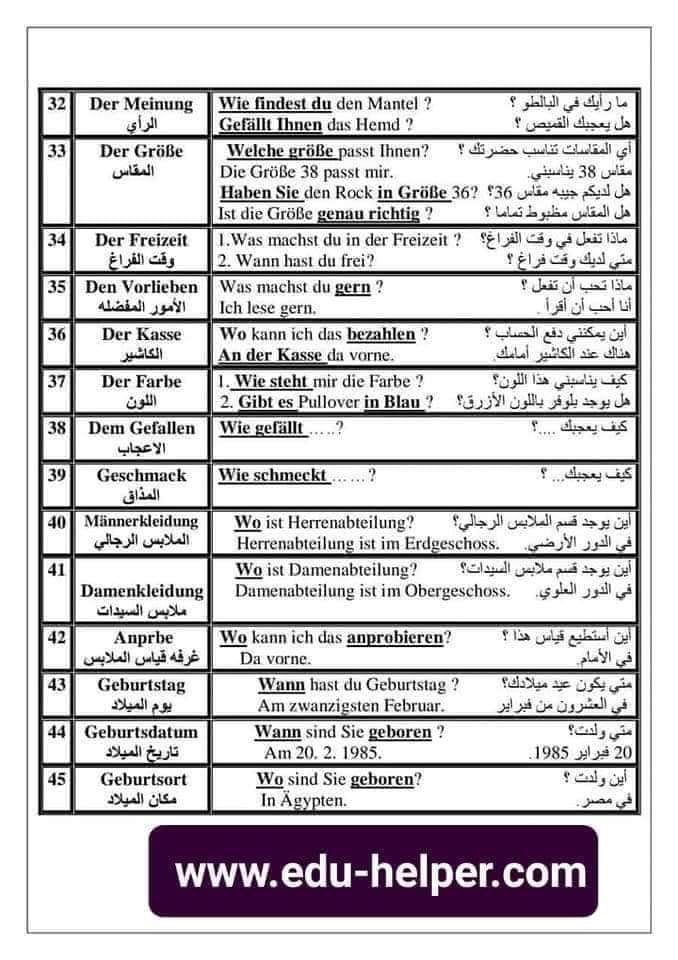 32 Der Meinung Wie findest du den Mantel ? ما رأيك في البالطو ؟
الرأي Gefällt Ihnen das Hemd ? هل يعجبك القميص ؟
33 Der Größe Welche größe passt Ihnen? أي المقاسات تناسب حضرتك ؟
المقاس Die Größe 38 passt mir. مقاس 38 يناسبني.
Haben Sie den Rock in Größe 36? هل لديكم جيبه مقاس 36؟
Ist die Größe genau richtig ? هل المقاس مظبوط تماما ؟
34 Der Freizeit 1.Was machst du in der Freizeit ? ماذا تفعل في وقت الفراغ؟
وقت الفراغ 2. Wann hast du frei? متي لديك وقت فراغ ؟
35 Den Vorlieben Was machst du gern ? ماذا تحب أن تفعل ؟
الأمور المفضله Ich lese gern. أنا أحب أن أقرأ .
36 Der Kasse Wo kann ich das bezahlen ? أين يمكنني دفع الحساب ؟
الكاشير An der Kasse da vorne. هناك عند الكاشير أمامك.
37 Der Farbe 1. Wie steht mir die Farbe ? كيف يناسبني هذا اللون؟
اللون 2. Gibt es Pullover in Blau ? هل يوجد بلوفر باللون الأزرق؟
38 Dem Gefallen Wie gefällt …..? كيف يعجبك ....؟
الاعجاب
39 Geschmack Wie schmeckt ……? كيف يعجبك... ؟
المذاق
40 Männerkleidung Wo ist Herrenabteilung? أين يوجد قسم الملابس الرجالي؟
الملابس الرجالي Herrenabteilung ist im Erdgeschoss. في الدور الأرضي.
41 Wo ist Damenabteilung? أين يوجد قسم ملابس السيدات؟
Damenkleidung Damenabteilung ist im Obergeschoss. في الدور العلوي.
ملابس السيدات
42 Anprbe Wo kann ich das anprobieren? أين أستطيع قياس هذا ؟
غرفه قياس الملابس Da vorne. في الأمام.
43 Geburtstag Wann hast du Geburtstag ? متي يكون عيد ميلادك؟
يوم الميلاد Am zwanzigsten Februar. في العشرون من فبراير
44 Geburtsdatum Wann sind Sie geboren ? متي ولدت؟
تاريخ الميلاد Am 20. 2. 1985. 20 فبراير 1985.
45 Geburtsort Wo sind Sie geboren? أين ولدت ؟
مكان الميلاد In Ägypten. في مصر.
www.edu-helper.com